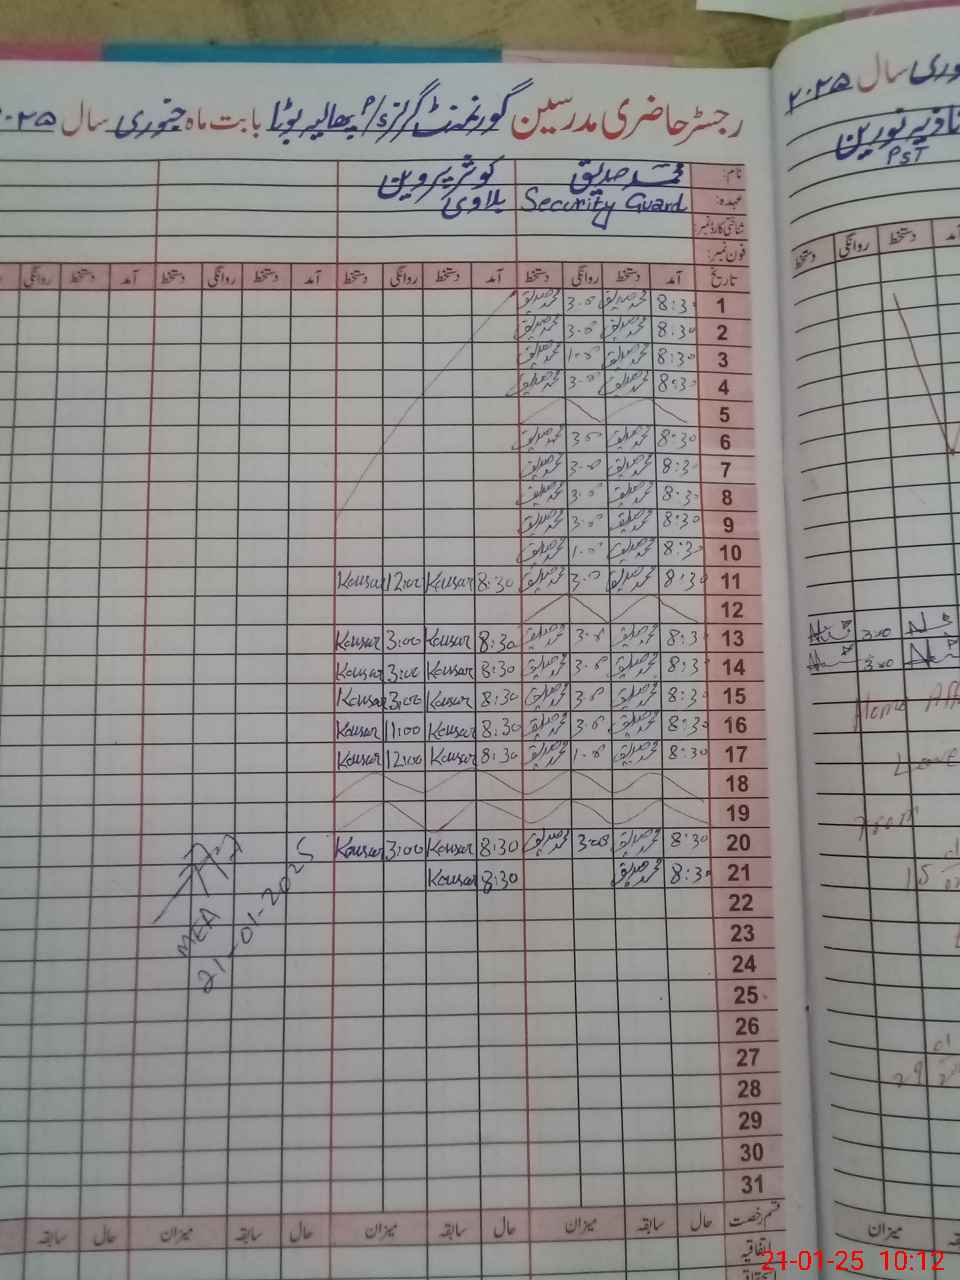 رجسٹر حاضری مدرسین گورنمنٹ گرلز P/S پھالیہ بوٹا بابت ماہ جنوری سال ۲۰۲۵
نام: محمد صدیق کوثر پروین
عہدہ: Security Guard بلاوی
شناختی کارڈ نمبر:
فون نمبر:
تاریخ آمد دستخط روانگی دستخط آمد دستخط روانگی دستخط آمد دستخط روانگی دستخط آمد دستخط روانگی
1 8:30 محمد صدیق 3:00 محمد صدیق
2 8:30 محمد صدیق 3:00 محمد صدیق
3 8:30 محمد صدیق 1:00 محمد صدیق
4 8:30 محمد صدیق 3:00 محمد صدیق
5
6 8:30 محمد صدیق 3:00 محمد صدیق
7 8:30 محمد صدیق 3:00 محمد صدیق
8 8:30 محمد صدیق 3:00 محمد صدیق
9 8:30 محمد صدیق 3:00 محمد صدیق
10 8:30 محمد صدیق 1:00 محمد صدیق
11 8:30 محمد صدیق 3:00 محمد صدیق 8:30 Kousar 12:00 Kousar
12
13 8:30 محمد صدیق 3:00 محمد صدیق 8:30 Kousar 3:00 Kousar
14 8:30 محمد صدیق 3:00 محمد صدیق 8:30 Kousar 3:00 Kousar
15 8:30 محمد صدیق 3:00 محمد صدیق 8:30 Kousar 3:00 Kousar
16 8:30 محمد صدیق 3:00 محمد صدیق 8:30 Kousar 11:00 Kousar
17 8:30 محمد صدیق 1:00 محمد صدیق 8:30 Kousar 12:00 Kousar
18
19
20 8:30 محمد صدیق 3:00 محمد صدیق 8:30 Kousar 3:00 Kousar
21 8:30 محمد صدیق 8:30 Kousar
22
23
24
25
26
27
28
29
30
31
MEA
21-01-2025
قسم رخصت حال سابقہ میزان حال سابقہ میزان حال سابقہ میزان حال سابقہ
اتفاقیہ
سال ۲۰۲۵
نادیہ نورین
PST
آمد دستخط روانگی دستخط
3:00
3:00
Leave
From
15
29
میزان
21-01-25 10:12